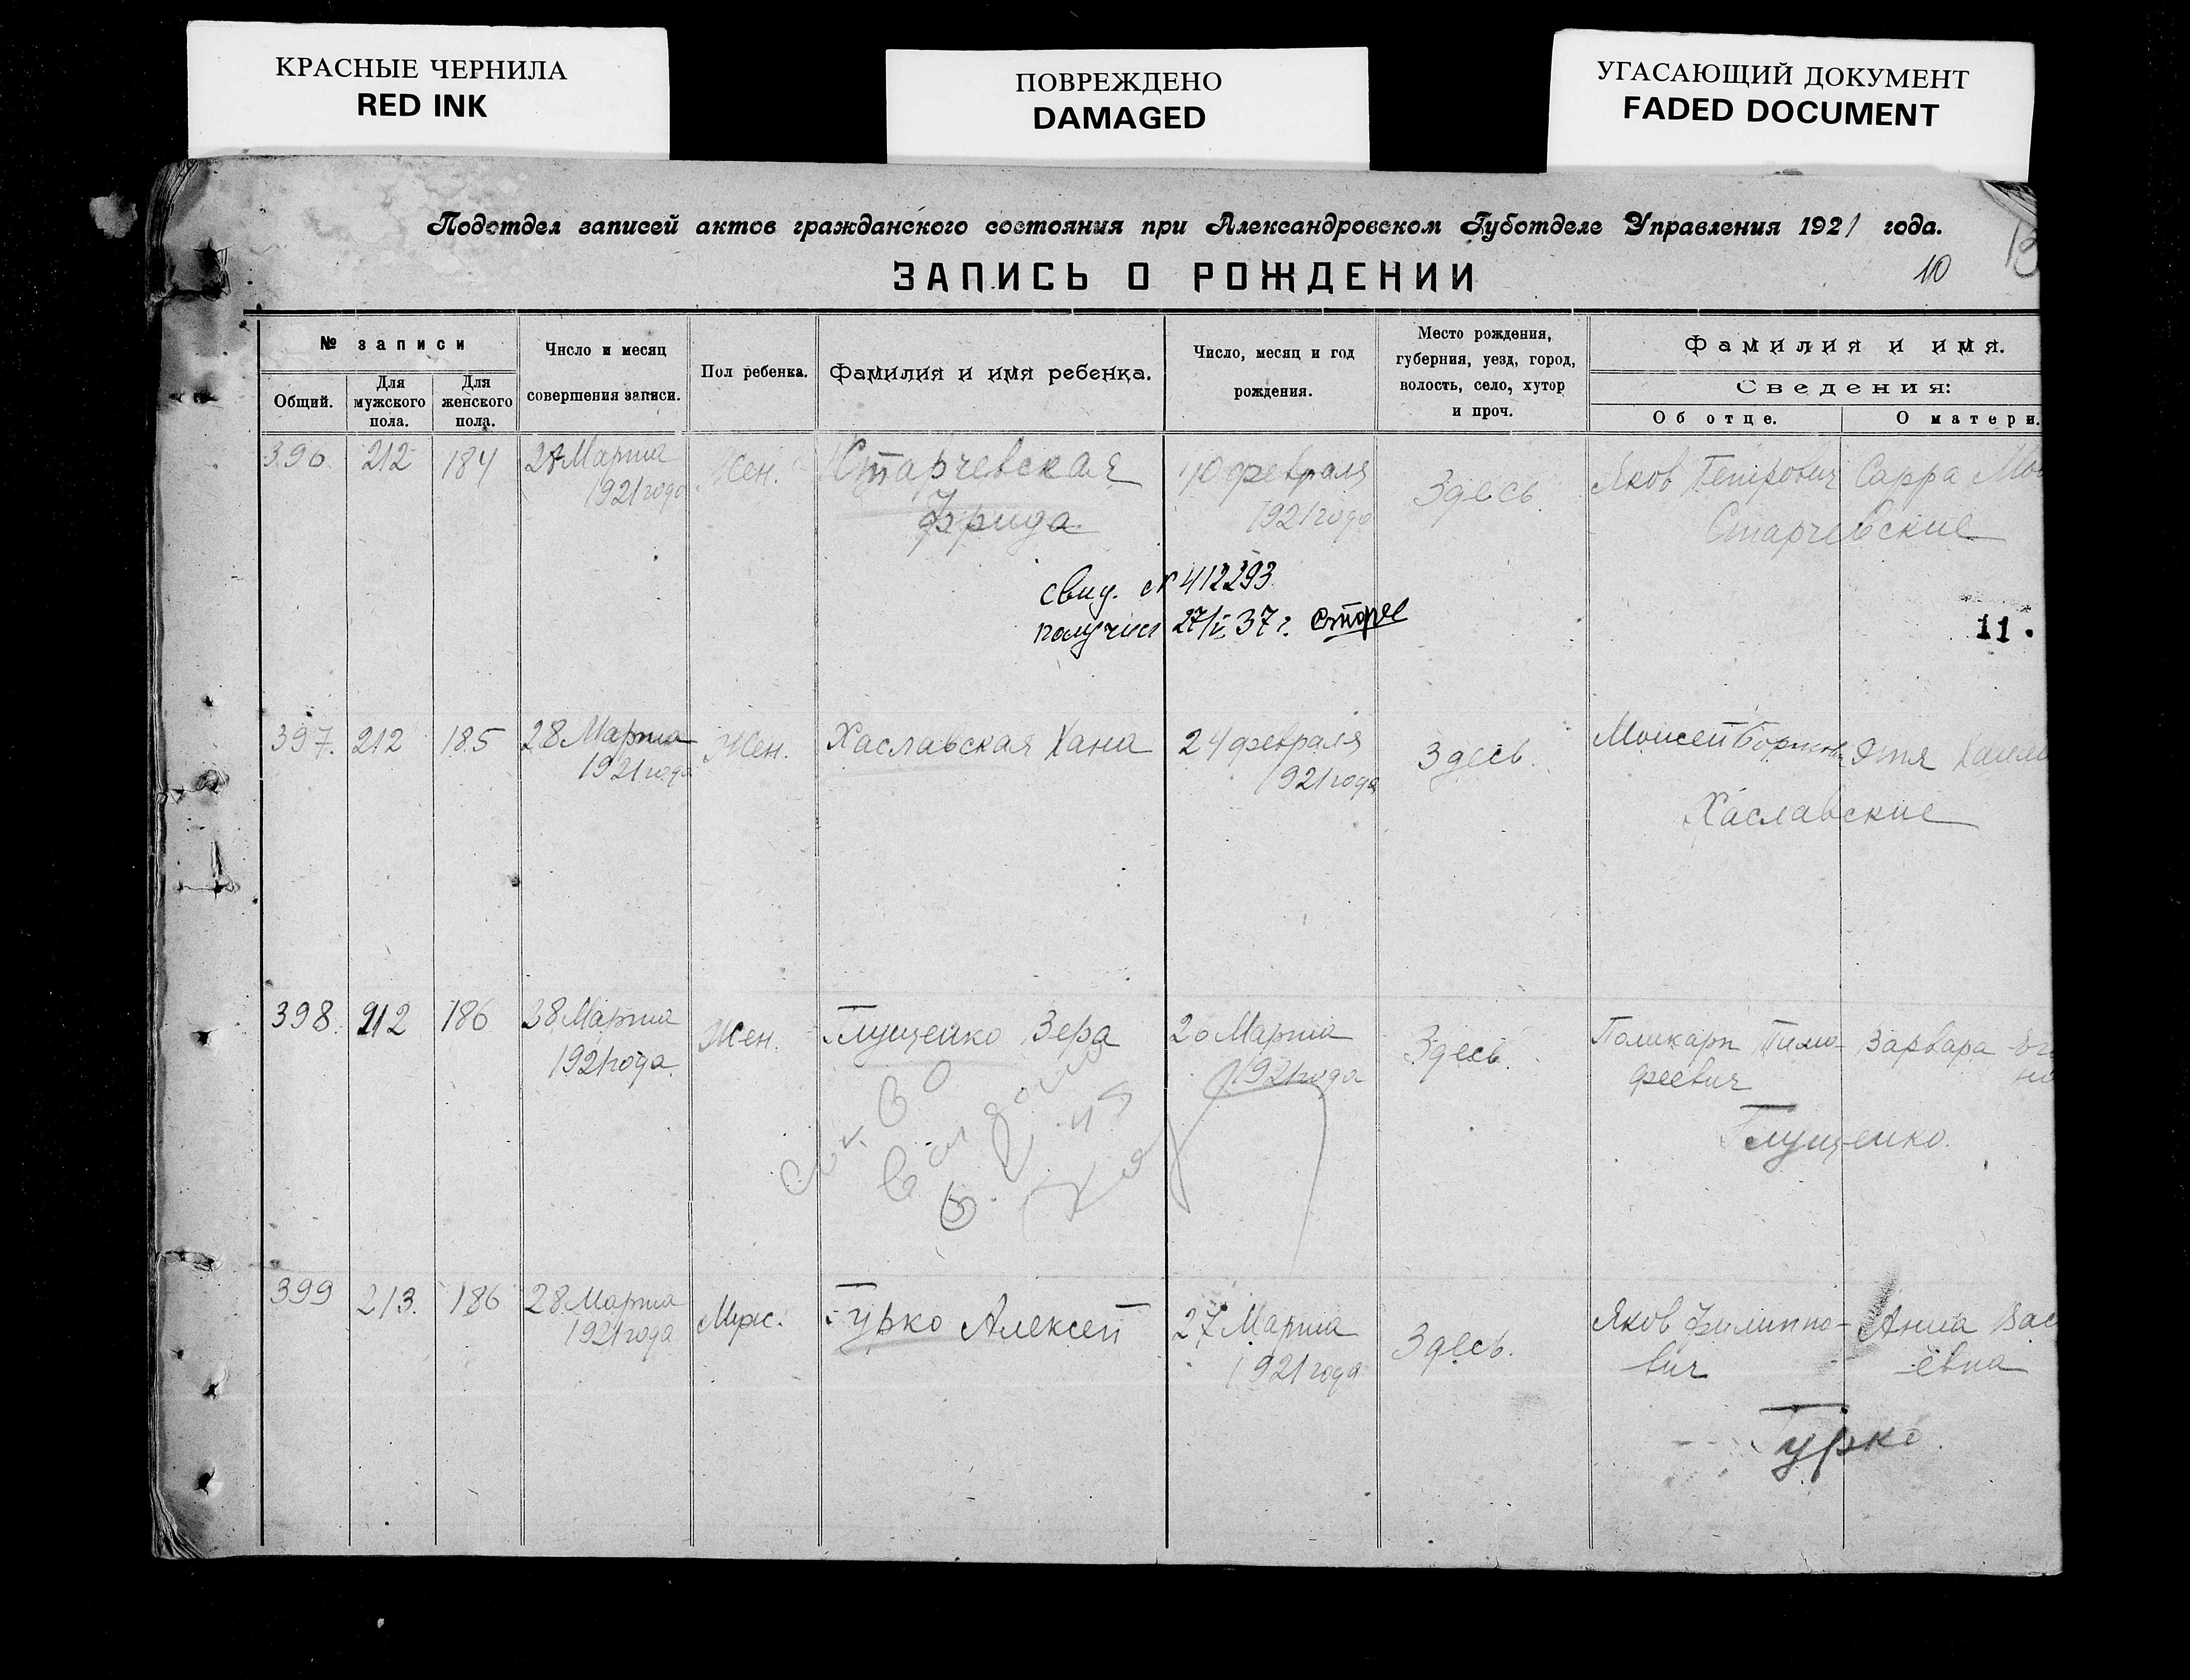 КРАСНЫЕ ЧЕРНИЛА
RED INK
ПОВРЕЖДЕНО
DAMAGED
УГАСАЮЩИЙ ДОКУМЕНТ
FADED DOCUMENT
Подотдел записей актов гражданского состояния при Александровском Губотделе Управления 1921 года.
ЗАПИСЬ О РОЖДЕНИИ
10
13
№ записи
Общий.
Для мужского пола.
Для женского пола.
Число и месяц совершения записи.
Пол ребенка.
Фамилия и имя ребенка.
Число, месяц и год рождения.
Место рождения, губерния, уезд, город, волость, село, хутор и проч.
Фамилия и имя.
Сведения:
Об отце.
О матери.
396 212 184 28 Марта Жен. Старчевская 10 февраля Здесь. Яков Петрович Сарра
1921 года Фрида. 1921 года Старчевские
свид. № 412293
получил 27/I 37 г.
11.
397. 212 185 28 Марта Жен. Хаславская Хана 24 февраля Здесь. Моисей Борисов. Этя
1921 года 1921 года Хаславские
398. 212 186 28 Марта Жен. Глущенко Вера 20 Марта Здесь. Поликарп Тимо- Варвара
1921 года. 1921 года феевич
Глущенко.
399 213. 186 28 Марта Муж. Гурко Алексей 27 Марта Здесь. Яков Филиппо- Анна Вас
1921 года 1921 года вич евна
Гурко.